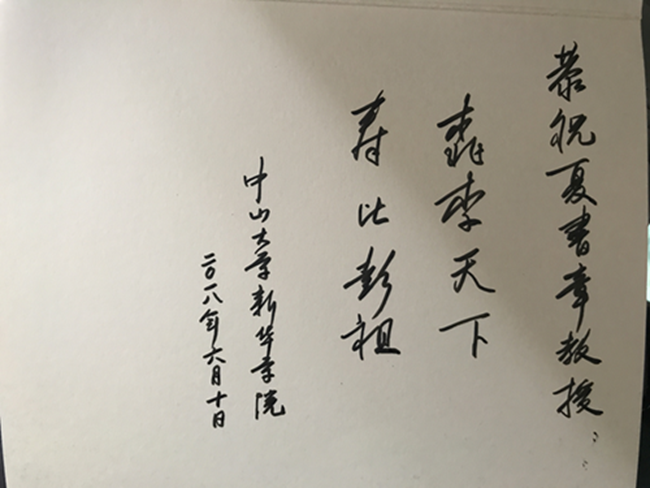 恭祝夏書章教授：
壽李天下
寿比彭祖
中山大学新华学院
二〇一八年六月十日